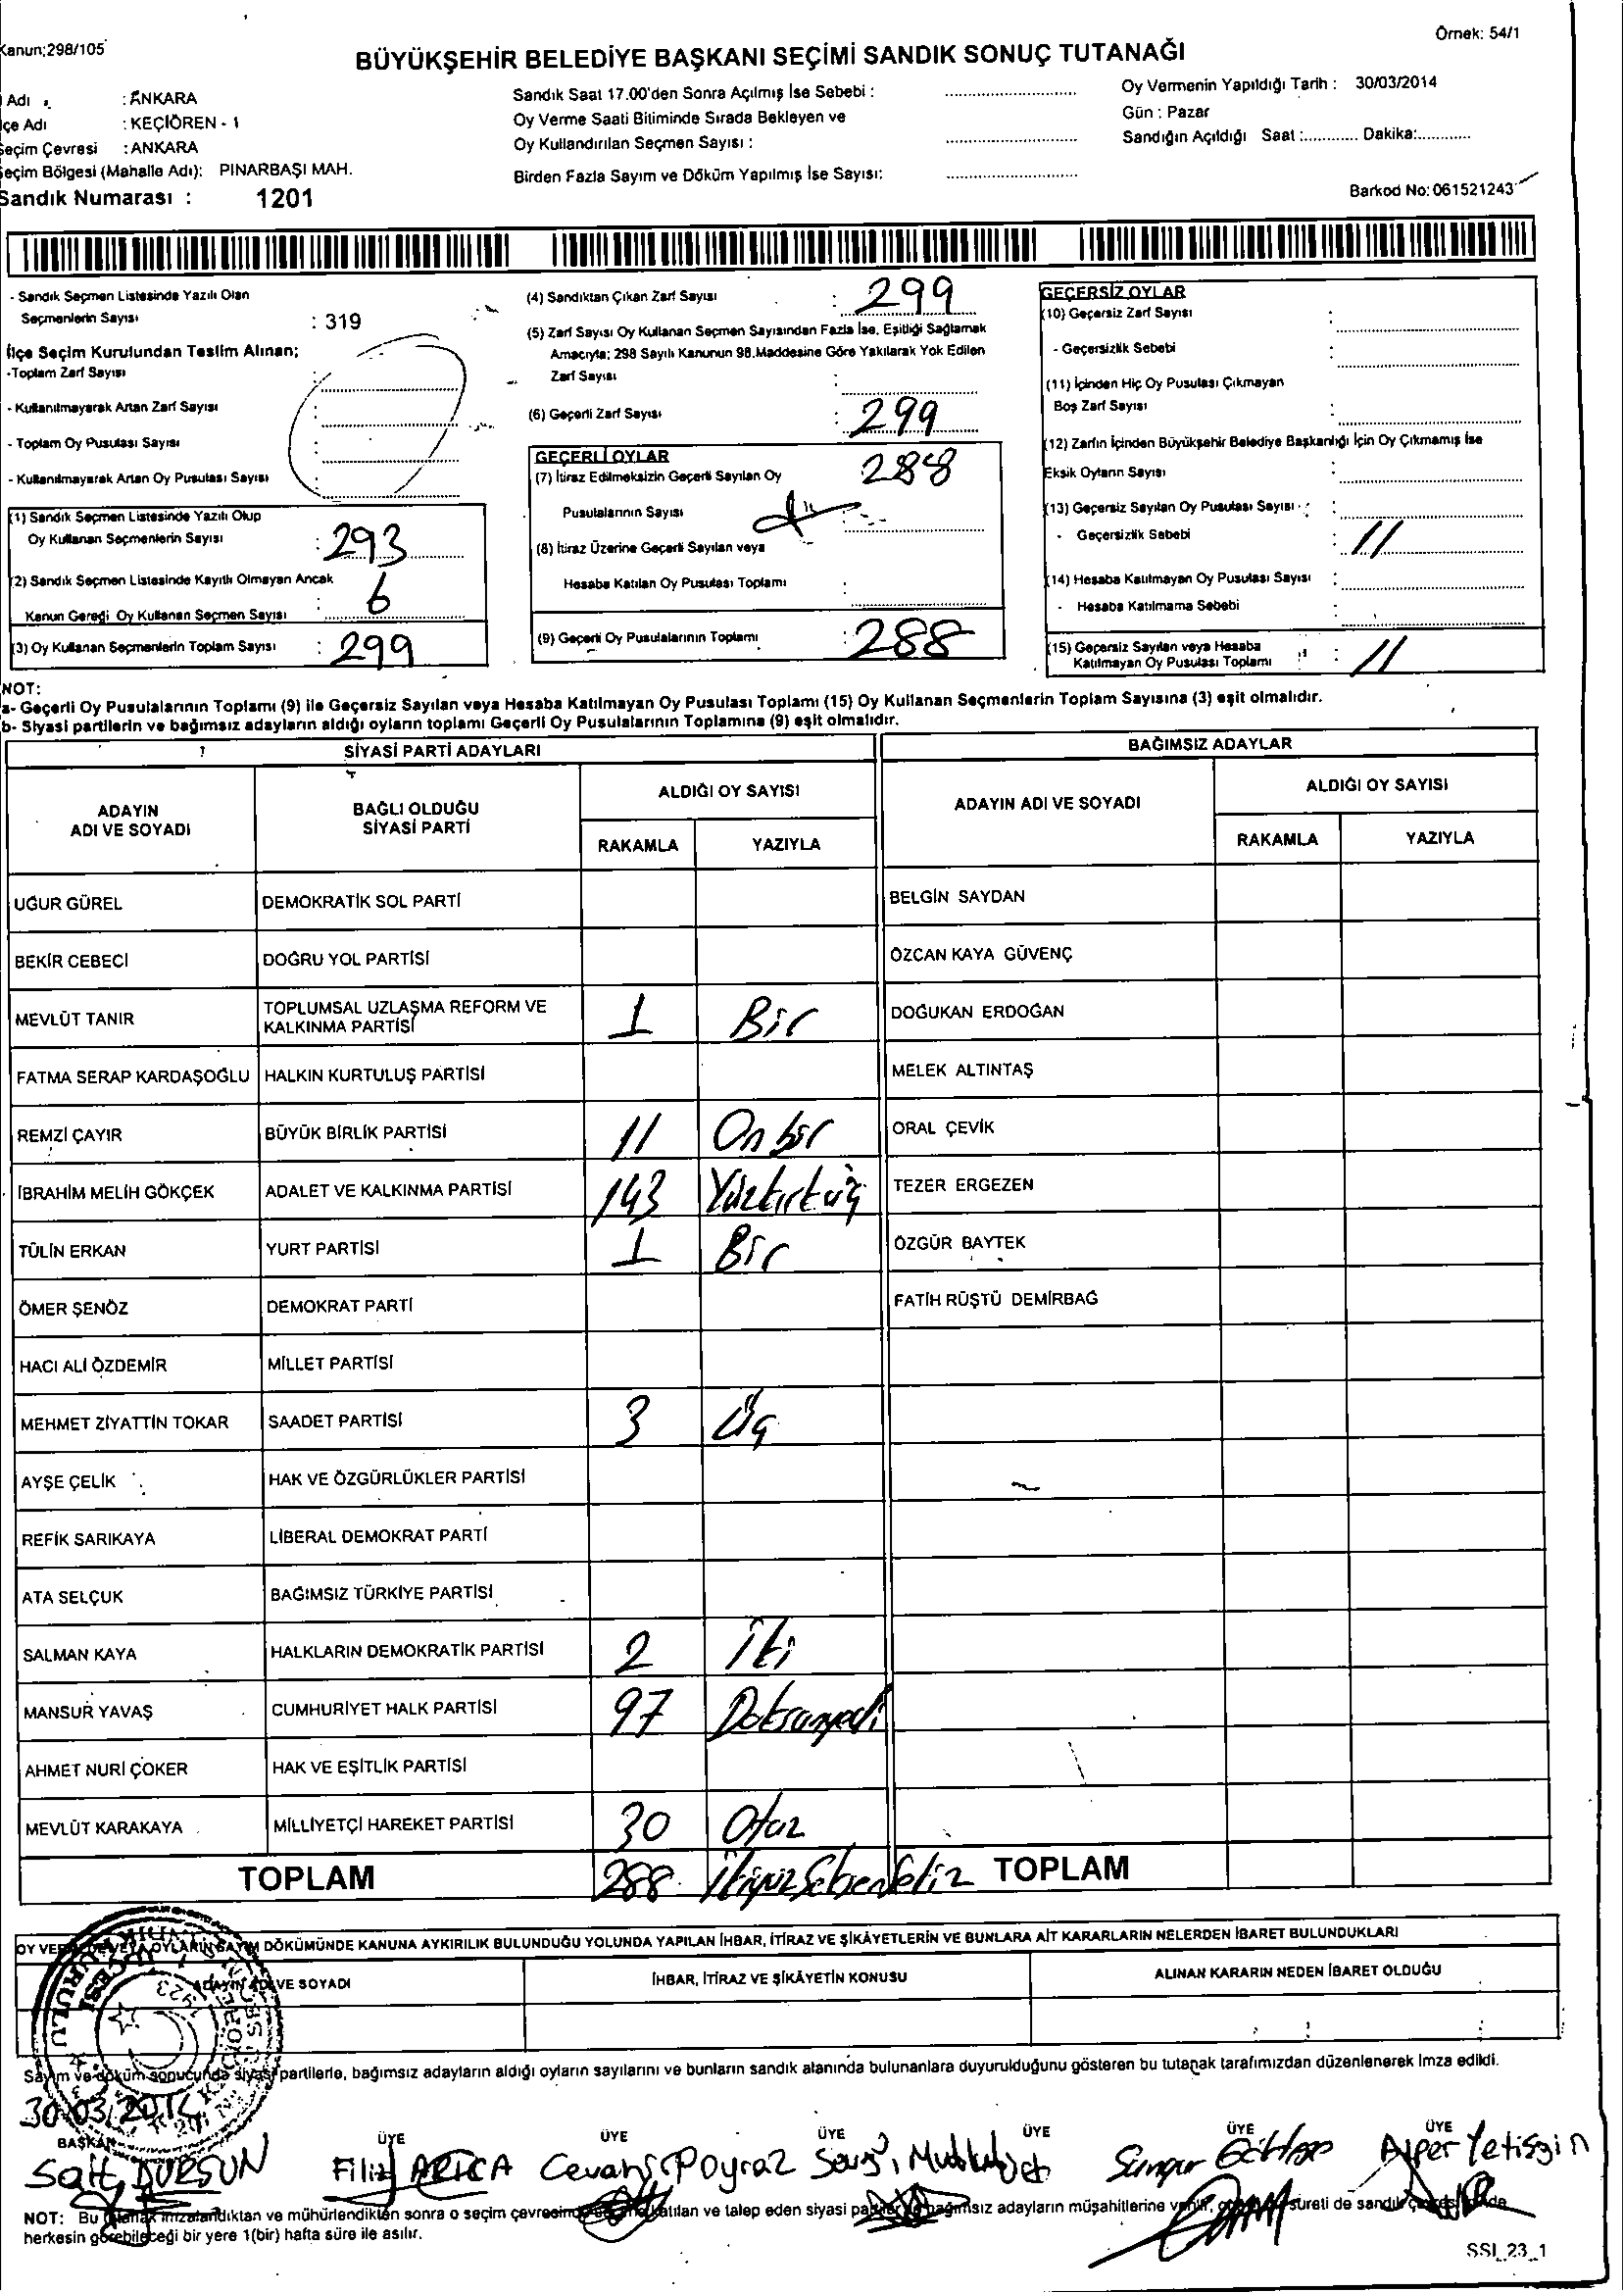 Kanun;298/105
Örnek: 54/1
BÜYÜKŞEHİR BELEDİYE BAŞKANI SEÇİMİ SANDIK SONUÇ TUTANAĞI
Adı : ANKARA
çe Adı : KEÇİÖREN - 1
Seçim Çevresi : ANKARA
Seçim Bölgesi (Mahalle Adı): PINARBAŞI MAH.
Sandık Numarası : 1201
Sandık Saat 17.00'den Sonra Açılmış İse Sebebi :
Oy Verme Saati Bitiminde Sırada Bekleyen ve
Oy Kullandırılan Seçmen Sayısı :
Birden Fazla Sayım ve Döküm Yapılmış İse Sayısı:
Oy Vermenin Yapıldığı Tarih : 30/03/2014
Gün : Pazar
Sandığın Açıldığı Saat :............ Dakika:............
Barkod No: 061521243
- Sandık Seçmen Listesinde Yazılı Olan
Seçmenlerin Sayısı : 319
İlçe Seçim Kurulundan Teslim Alınan;
-Toplam Zarf Sayısı :
- Kullanılmayarak Artan Zarf Sayısı :
- Toplam Oy Pusulası Sayısı :
- Kullanılmayarak Artan Oy Pusulası Sayısı :
(1) Sandık Seçmen Listesinde Yazılı Olup
Oy Kullanan Seçmenlerin Sayısı : 293
(2) Sandık Seçmen Listesinde Kayıtlı Olmayan Ancak
Kanun Gereği Oy Kullanan Seçmen Sayısı : 6
(3) Oy Kullanan Seçmenlerin Toplam Sayısı : 299
(4) Sandıktan Çıkan Zarf Sayısı : 299
(5) Zarf Sayısı Oy Kullanan Seçmen Sayısından Fazla İse, Eşitliği Sağlamak
Amacıyla; 298 Sayılı Kanunun 98.Maddesine Göre Yakılarak Yok Edilen
Zarf Sayısı :
(6) Geçerli Zarf Sayısı : 299
GEÇERLİ OYLAR
(7) İtiraz Edilmeksizin Geçerli Sayılan Oy 288
Pusulalarının Sayısı
(8) İtiraz Üzerine Geçerli Sayılan veya
Hesaba Katılan Oy Pusulası Toplamı :
(9) Geçerli Oy Pusulalarının Toplamı : 288
GEÇERSİZ OYLAR
(10) Geçersiz Zarf Sayısı :
- Geçersizlik Sebebi :
(11) İçinden Hiç Oy Pusulası Çıkmayan
Boş Zarf Sayısı :
(12) Zarfın İçinden Büyükşehir Belediye Başkanlığı İçin Oy Çıkmamış İse
Eksik Oyların Sayısı :
(13) Geçersiz Sayılan Oy Pusulası Sayısı :
- Geçersizlik Sebebi : 11
(14) Hesaba Katılmayan Oy Pusulası Sayısı :
- Hesaba Katılmama Sebebi :
(15) Geçersiz Sayılan veya Hesaba
Katılmayan Oy Pusulası Toplamı : 11
NOT:
a- Geçerli Oy Pusulalarının Toplamı (9) ile Geçersiz Sayılan veya Hesaba Katılmayan Oy Pusulası Toplamı (15) Oy Kullanan Seçmenlerin Toplam Sayısına (3) eşit olmalıdır.
b- Siyasi partilerin ve bağımsız adayların aldığı oyların toplamı Geçerli Oy Pusulalarının Toplamına (9) eşit olmalıdır.
SİYASİ PARTİ ADAYLARI
BAĞIMSIZ ADAYLAR
ADAYIN
ADI VE SOYADI
BAĞLI OLDUĞU
SİYASİ PARTİ
ALDIĞI OY SAYISI
RAKAMLA YAZIYLA
ADAYIN ADI VE SOYADI
ALDIĞI OY SAYISI
RAKAMLA YAZIYLA
UĞUR GÜREL DEMOKRATİK SOL PARTİ BELGİN SAYDAN
BEKİR CEBECİ DOĞRU YOL PARTİSİ ÖZCAN KAYA GÜVENÇ
MEVLÜT TANIR TOPLUMSAL UZLAŞMA REFORM VE
KALKINMA PARTİSİ 1 Bir DOĞUKAN ERDOĞAN
FATMA SERAP KARDAŞOĞLU HALKIN KURTULUŞ PARTİSİ MELEK ALTINTAŞ
REMZİ ÇAYIR BÜYÜK BİRLİK PARTİSİ 11 Onbir ORAL ÇEVİK
İBRAHİM MELİH GÖKÇEK ADALET VE KALKINMA PARTİSİ 143 Yüzkırküç TEZER ERGEZEN
TÜLİN ERKAN YURT PARTİSİ 1 Bir ÖZGÜR BAYTEK
ÖMER ŞENÖZ DEMOKRAT PARTİ FATİH RÜŞTÜ DEMİRBAĞ
HACI ALİ ÖZDEMİR MİLLET PARTİSİ
MEHMET ZİYATTİN TOKAR SAADET PARTİSİ 3 Üç
AYŞE ÇELİK HAK VE ÖZGÜRLÜKLER PARTİSİ
REFİK SARIKAYA LİBERAL DEMOKRAT PARTİ
ATA SELÇUK BAĞIMSIZ TÜRKİYE PARTİSİ
SALMAN KAYA HALKLARIN DEMOKRATİK PARTİSİ 2 İki
MANSUR YAVAŞ CUMHURİYET HALK PARTİSİ 97 Doksanyedi
AHMET NURİ ÇOKER HAK VE EŞİTLİK PARTİSİ
MEVLÜT KARAKAYA MİLLİYETÇİ HAREKET PARTİSİ 30 Otuz
TOPLAM 288 İkiyüzSeksenSekiz TOPLAM
OY VERMEDE VEYA OYLARIN SAYIM DÖKÜMÜNDE KANUNA AYKIRILIK BULUNDUĞU YOLUNDA YAPILAN İHBAR, İTİRAZ VE ŞİKÂYETLERİN VE BUNLARA AİT KARARLARIN NELERDEN İBARET BULUNDUKLARI
ADAYIN ADI VE SOYADI İHBAR, İTİRAZ VE ŞİKÂYETİN KONUSU ALINAN KARARIN NEDEN İBARET OLDUĞU
Sayım ve döküm sonucunda siyasi partilerle, bağımsız adayların aldığı oyların sayılarını ve bunların sandık alanında bulunanlara duyurulduğunu gösteren bu tutanak tarafımızdan düzenlenerek imza edildi.
30.03.2014
BAŞKAN ÜYE ÜYE ÜYE ÜYE ÜYE ÜYE
Sait DURSUN Filiz ARICA Cevahir Poyraz Alper Yetişgin
NOT: Bu tutanak imzalandıktan ve mühürlendikten sonra o seçim çevresinde katılan ve talep eden siyasi bağımsız adayların müşahitlerine sureti de sandık
herkesin görebileceği bir yere 1(bir) hafta süre ile asılır.
SSI_23_1